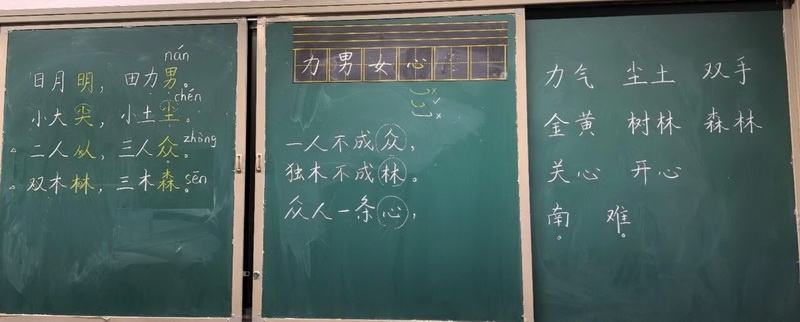 nán
日月明，田力男。
chén
小大尖，小土尘。
二人从，三人众。zhòng
双木林，三木森。sēn
力男女心
一人不成众，
独木不成林。
众人一条心，
力气 尘土 双手
金黄 树林 森林
关心 开心
南 难